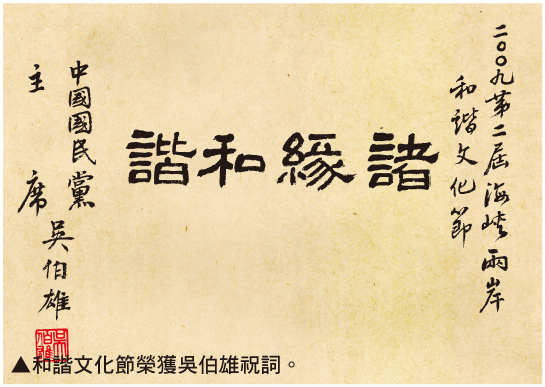 二〇〇九第二屆海峽兩岸
和諧文化節
諸緣和諧
中國國民黨
主席
吳伯雄
吳伯雄
▲和諧文化節榮獲吳伯雄祝詞。